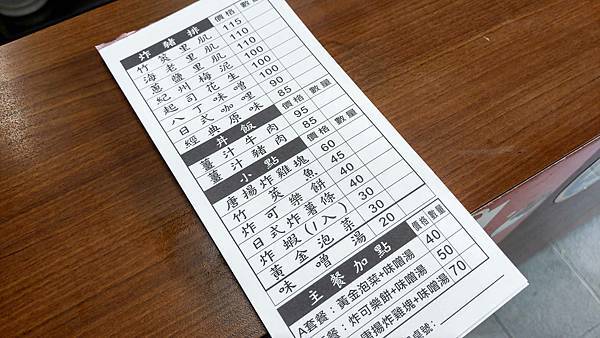 炸豬排 價格 數量
竹筴里肌 115
海老里肌 110
蔥鹽里肌 110
紀州梅泥 100
起司花生 100
八丁味噌 100
日式咖哩 90
經典原味 85
丼飯 價格 數量
薑汁牛肉 95
薑汁豬肉 85
小點 價格 數量
唐揚炸雞塊 60
竹筴魚 45
炸可樂餅 40
日式炸薯條 40
炸蝦(1入) 30
黃金泡菜 30
味噌湯 20
主餐加點 價格 數量
A套餐:黃金泡菜+味噌湯 40
套餐:炸可樂餅+味噌湯 50
唐揚炸雞塊+味噌湯 70
桌號: